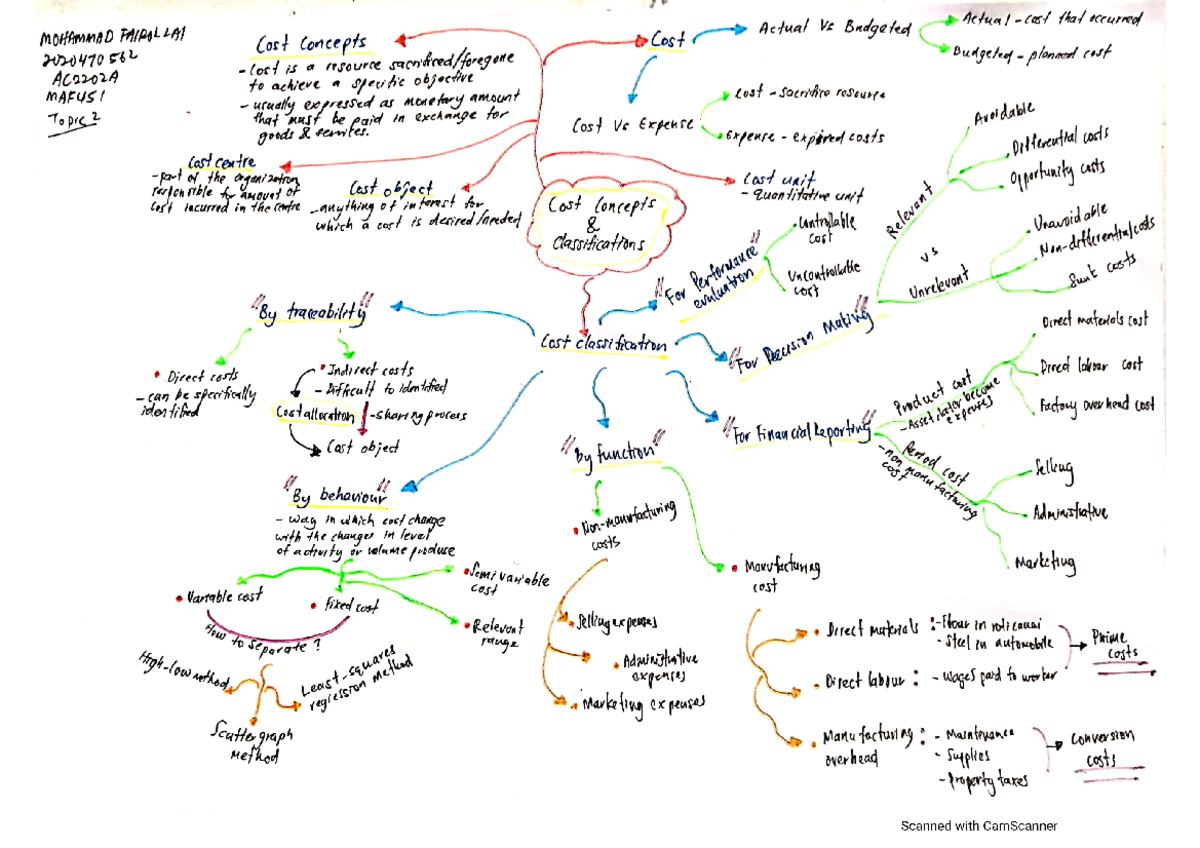 MOHAMMAD FAIROLLAI
2020470562
AC2202A
MAF451
Topic 2
Cost Concepts
- Cost is a resource sacrificed/foregone
to achieve a specific objective
- usually expressed as monetary amount
that must be paid in exchange for
goods & services.
Cost
Actual Vs Budgeted
Actual - cost that occurred
Budgeted - planned cost
Cost Vs Expense
Cost - sacrifice resource
Expense - expired costs
Cost centre
- part of the organization
responsible for amount of
cost incurred in the centre
Cost object
- anything of interest for
which a cost is desired/needed
Cost unit
- Quantitative unit
Cost Concepts
&
Classifications
Cost classification
"For Performance
evaluation"
Controllable
cost
Uncontrollable
cost
"For Decision Making"
Relevant
vs
Unrelevant
Avoidable
Differential costs
Opportunity costs
Unavoidable
Non-differential costs
Sunk costs
"By traceability"
Direct costs
- can be specifically
identified
Indirect costs
- Difficult to identified
Cost allocation
- sharing process
Cost object
"For Financial Reporting"
Product cost
- Asset later become
expenses
Direct materials cost
Direct labour cost
Factory overhead cost
Period cost
- non manufacturing
cost
Selling
Administrative
Marketing
"By behaviour"
- way in which cost change
with the changes in level
of activity or volume produce
Variable cost
Fixed cost
Semi variable
cost
Relevant
range
How to separate?
High-low method
Scattergraph
Method
Least-squares
regression method
"By function"
Non-manufacturing
costs
Selling expenses
Administrative
expenses
Marketing expenses
Manufacturing
cost
Direct materials : - Flour in roti canai
- Steel in automobile
Prime
costs
Direct labour : - Wages paid to worker
Manufacturing : - Maintenance
overhead
- Supplies
- Property taxes
Conversion
costs
Scanned with CamScanner